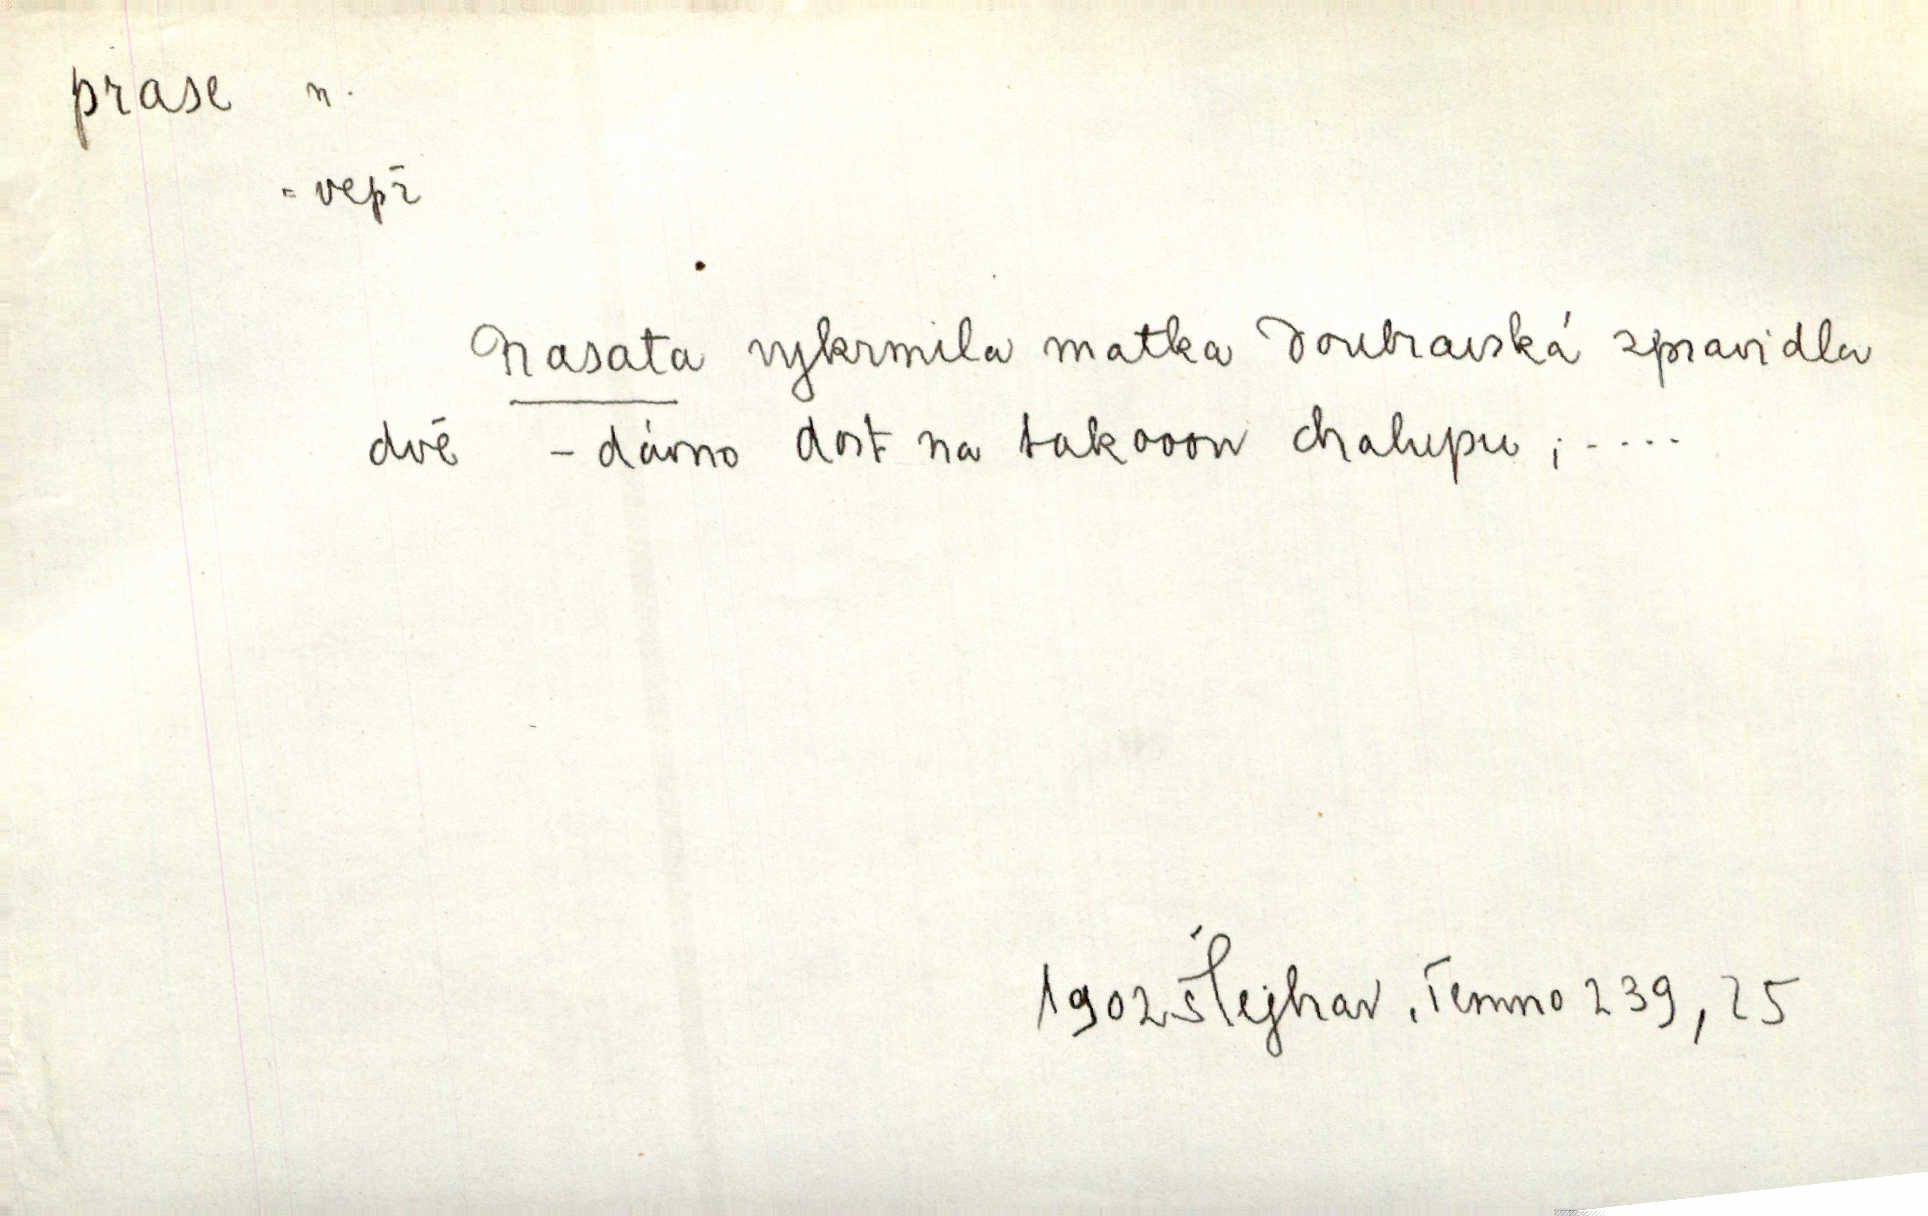 prase n.
= vepř
Prasata vykrmila matka Doubravská zpravidla
dvě – dávno dost na takovou chalupu ; . . . .
1902 Šlejhar, Temno 239, 25